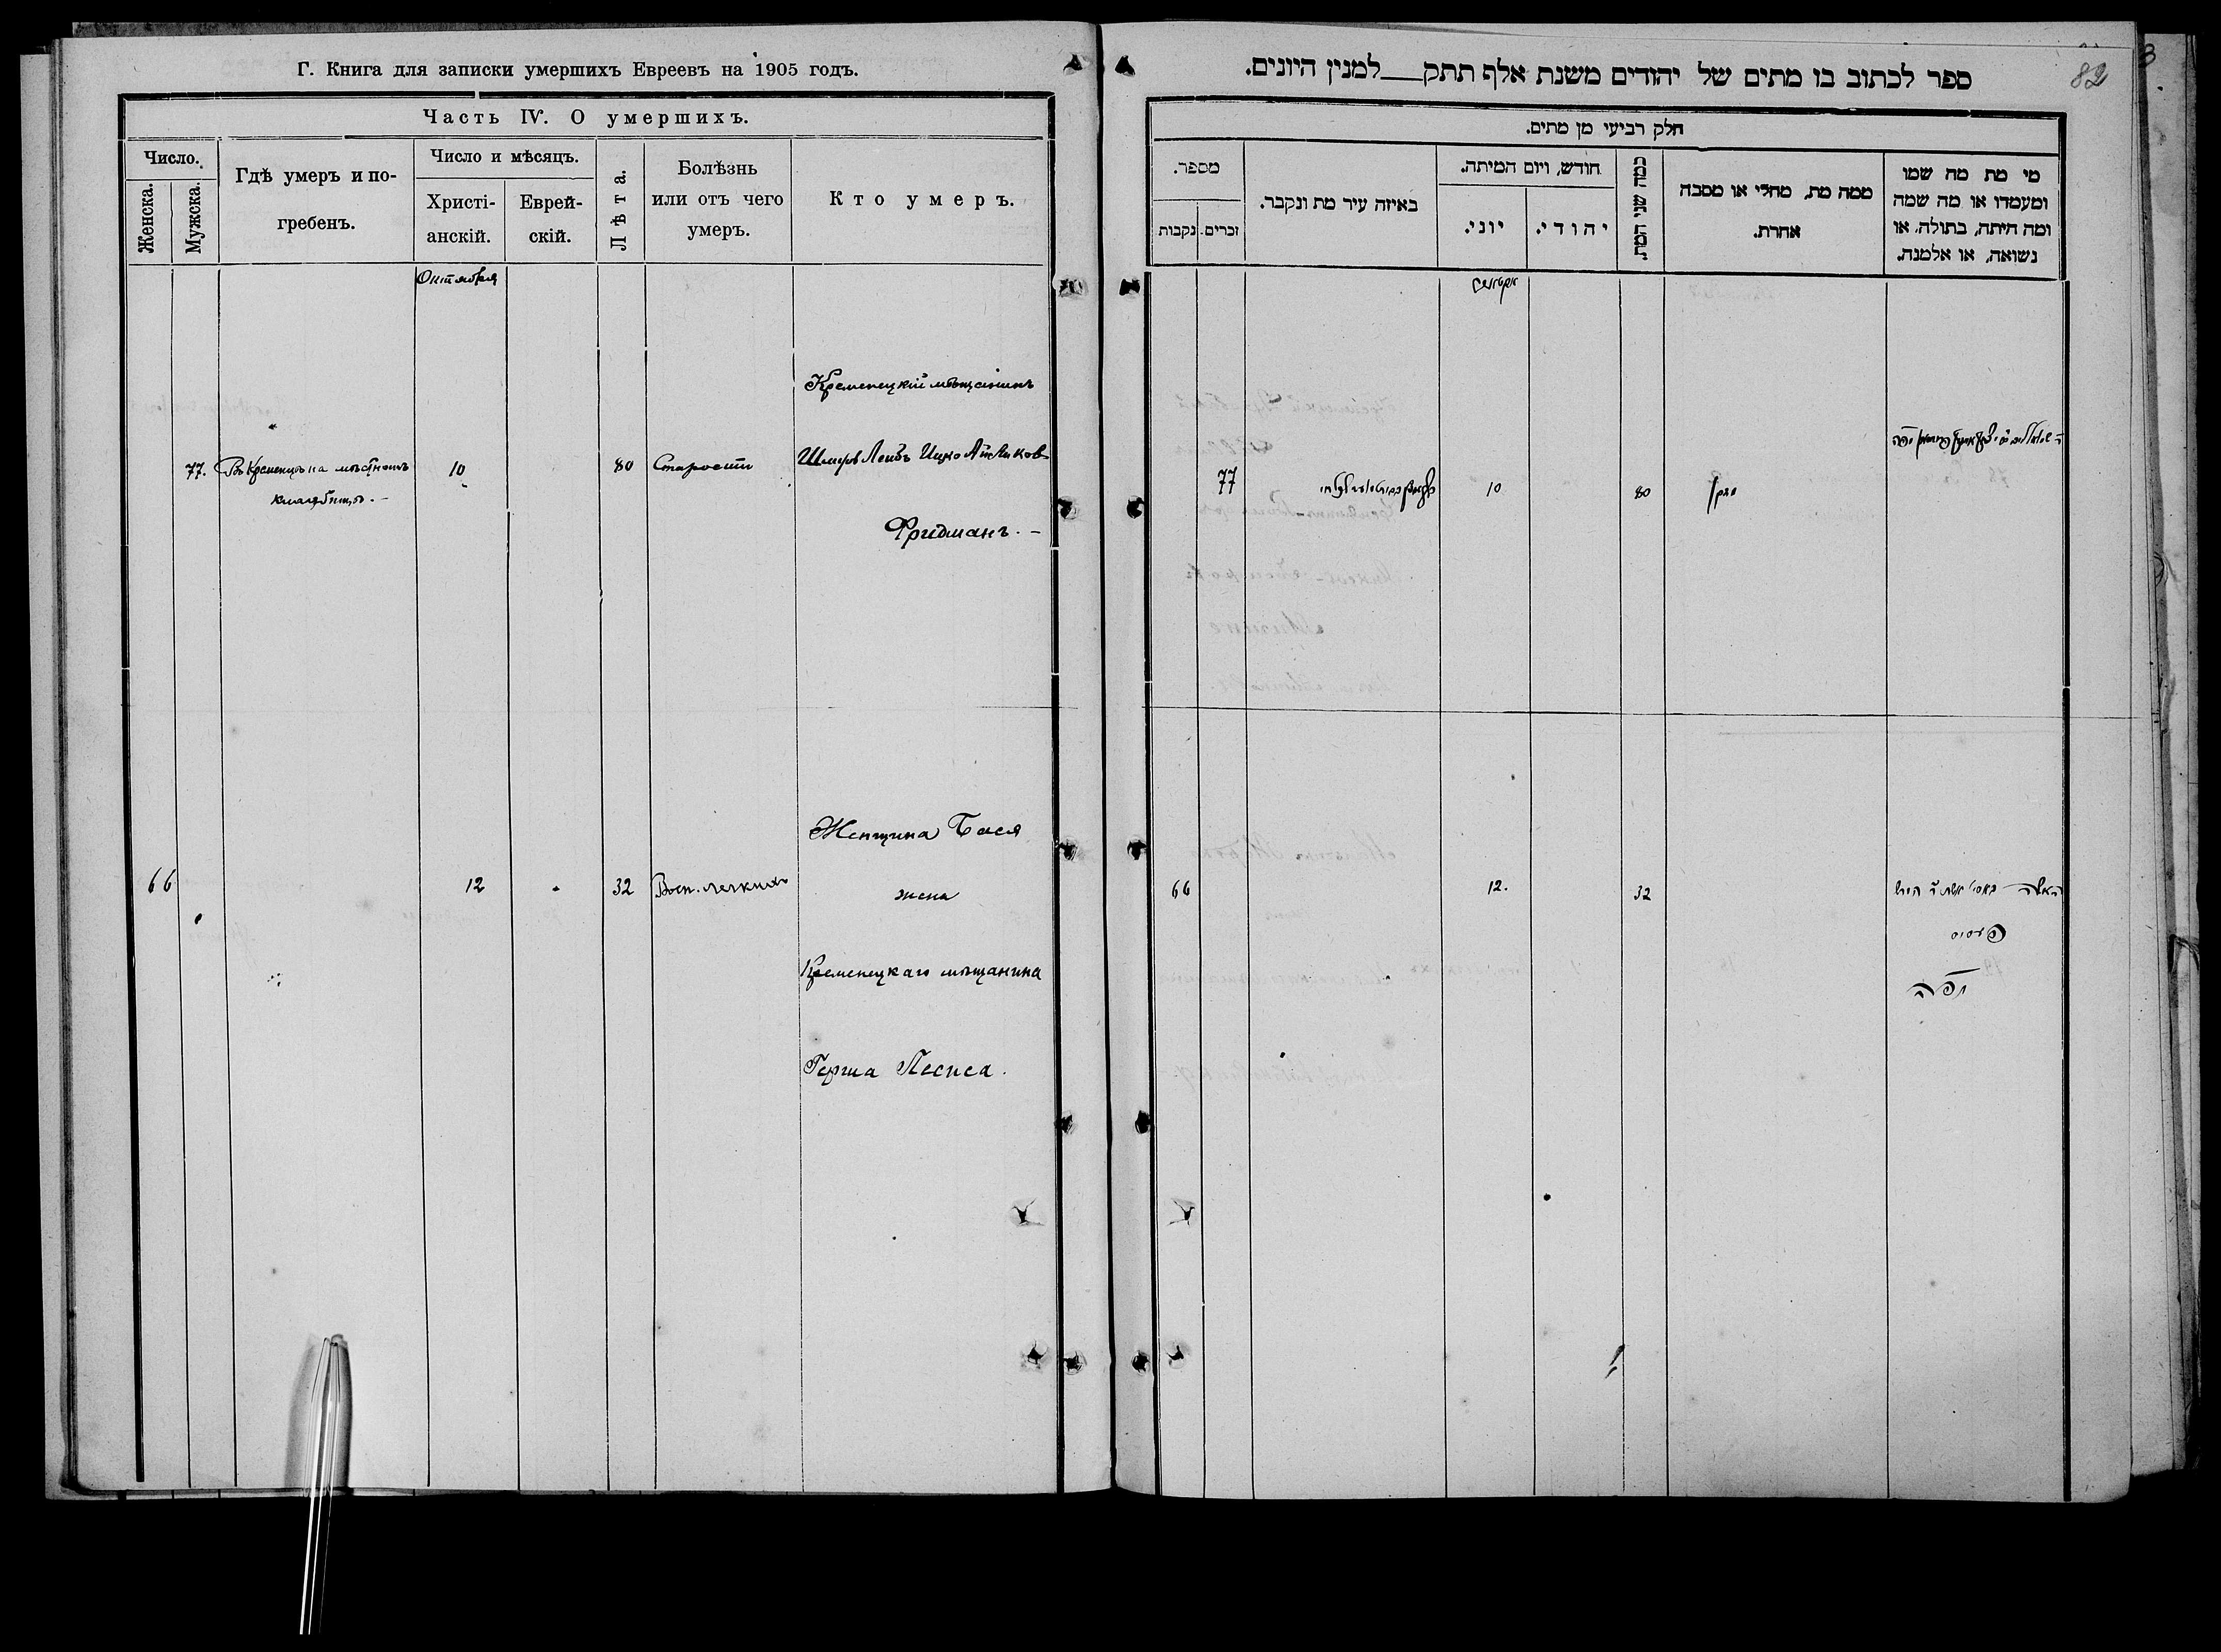 Г. Книга для записки умершихъ Евреевъ на 1905 годъ.
Часть IV. О умершихъ.
Число.
Женска.
Мужска.
Гдѣ умеръ и по-
гребенъ.
Число и мѣсяцъ.
Христі-
анскій.
Еврей-
скій.
Лѣта.
Болѣзнь
или отъ чего
умеръ.
Кто умеръ.
Октября
Кременецкій мѣщанинъ
77. Въ Кременцѣ на мѣстномъ 10 80 Старости Шмеръ Лейбъ Ицко Айзиковъ
кладбищѣ.-
Фридманъ.-
Женщина Бася
66 12 32 Восп. легкихъ жена
Кременецкаго мѣщанина
Герша Песиса.
82
ספר לכתוב בו מתים של יהודים משנת אלף תתק למנין היונים.
חלק רביעי מן מתים.
מספר.
נקבות
זכרים.
באיזה עיר מת ונקבר.
חודש, ויום המיתה.
יוני.
יהודי.
כמה שני המת.
ממה מת, מחלי או מסבה
אחרת.
מי מת מה שמו
ומעמדו או מה שמה
ומה היתה, בתולה, או
נשואה, או אלמנה.
77 10 80 זקן
66 12. 32 האשה באסי אשת ר' הירש
פעסיס